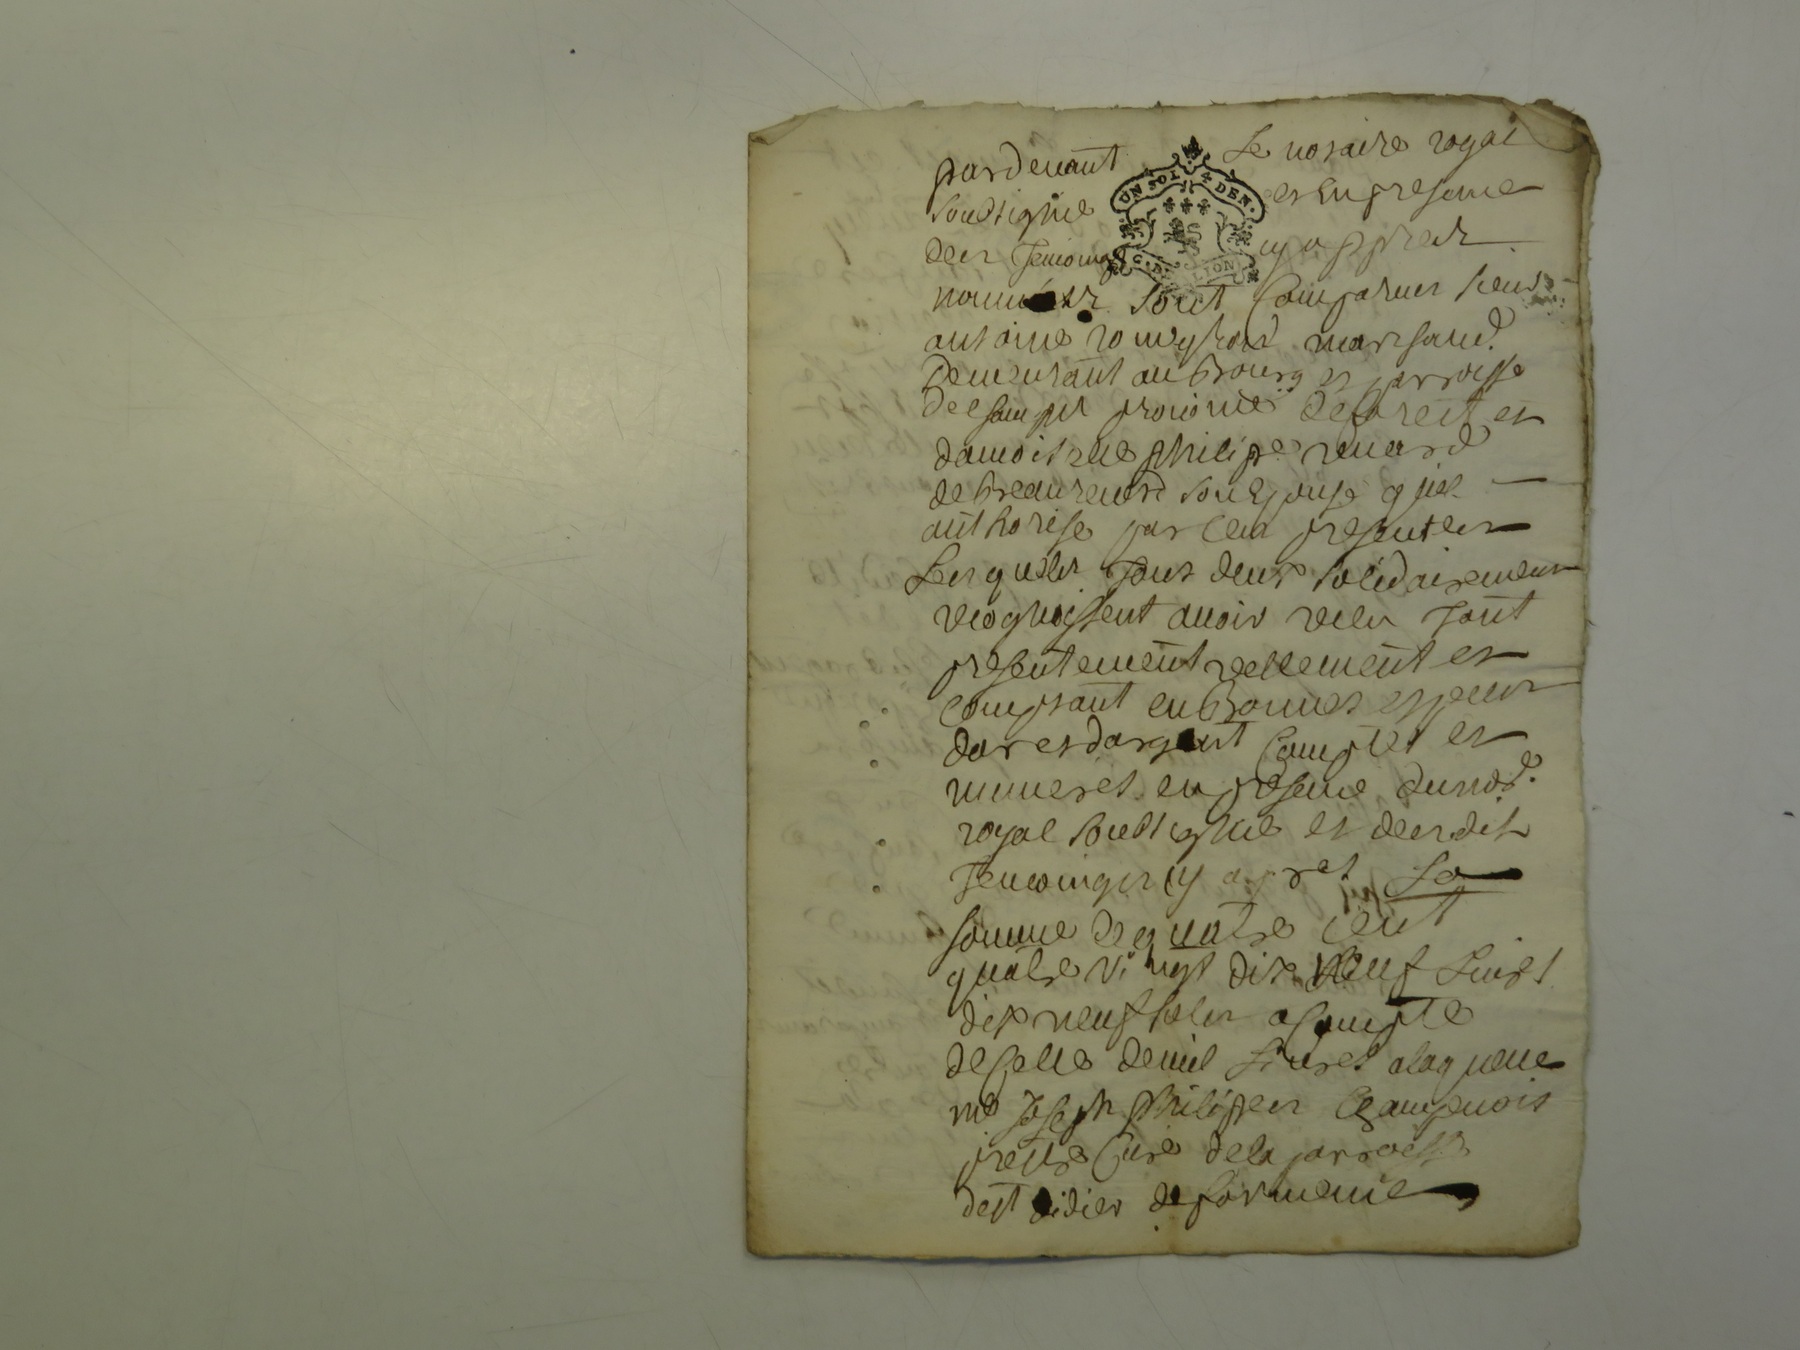 pardeuant Le notaire royal
UN SOL 4 DEN.
soussigné et en presence
des temoings cy apprest
G. DE LION
nommész sont comparus sieur
antoine rouveyrois marchand
demeurant au bourg et parroisse
de province de forest et
damoiselle philipe renard
de beaurenard son epouse q'uil
authorise par ces presentes
Lesquels tous deux solidairement
recognoissent auoir receu tout
presentement reellement et
comptant en bonnes especes
dor et dargent comptés et
numerés en presence du not.e
royal soussigné et desdits
temoingts cy apret La
somme de quatre cent
quatre vingt dix neuf Liures
dix neuf sols a compte
de celle de mil Liures a laquelle
me Joseph philippes Champenois
prestre curé de la parroisse
de st didier de formans